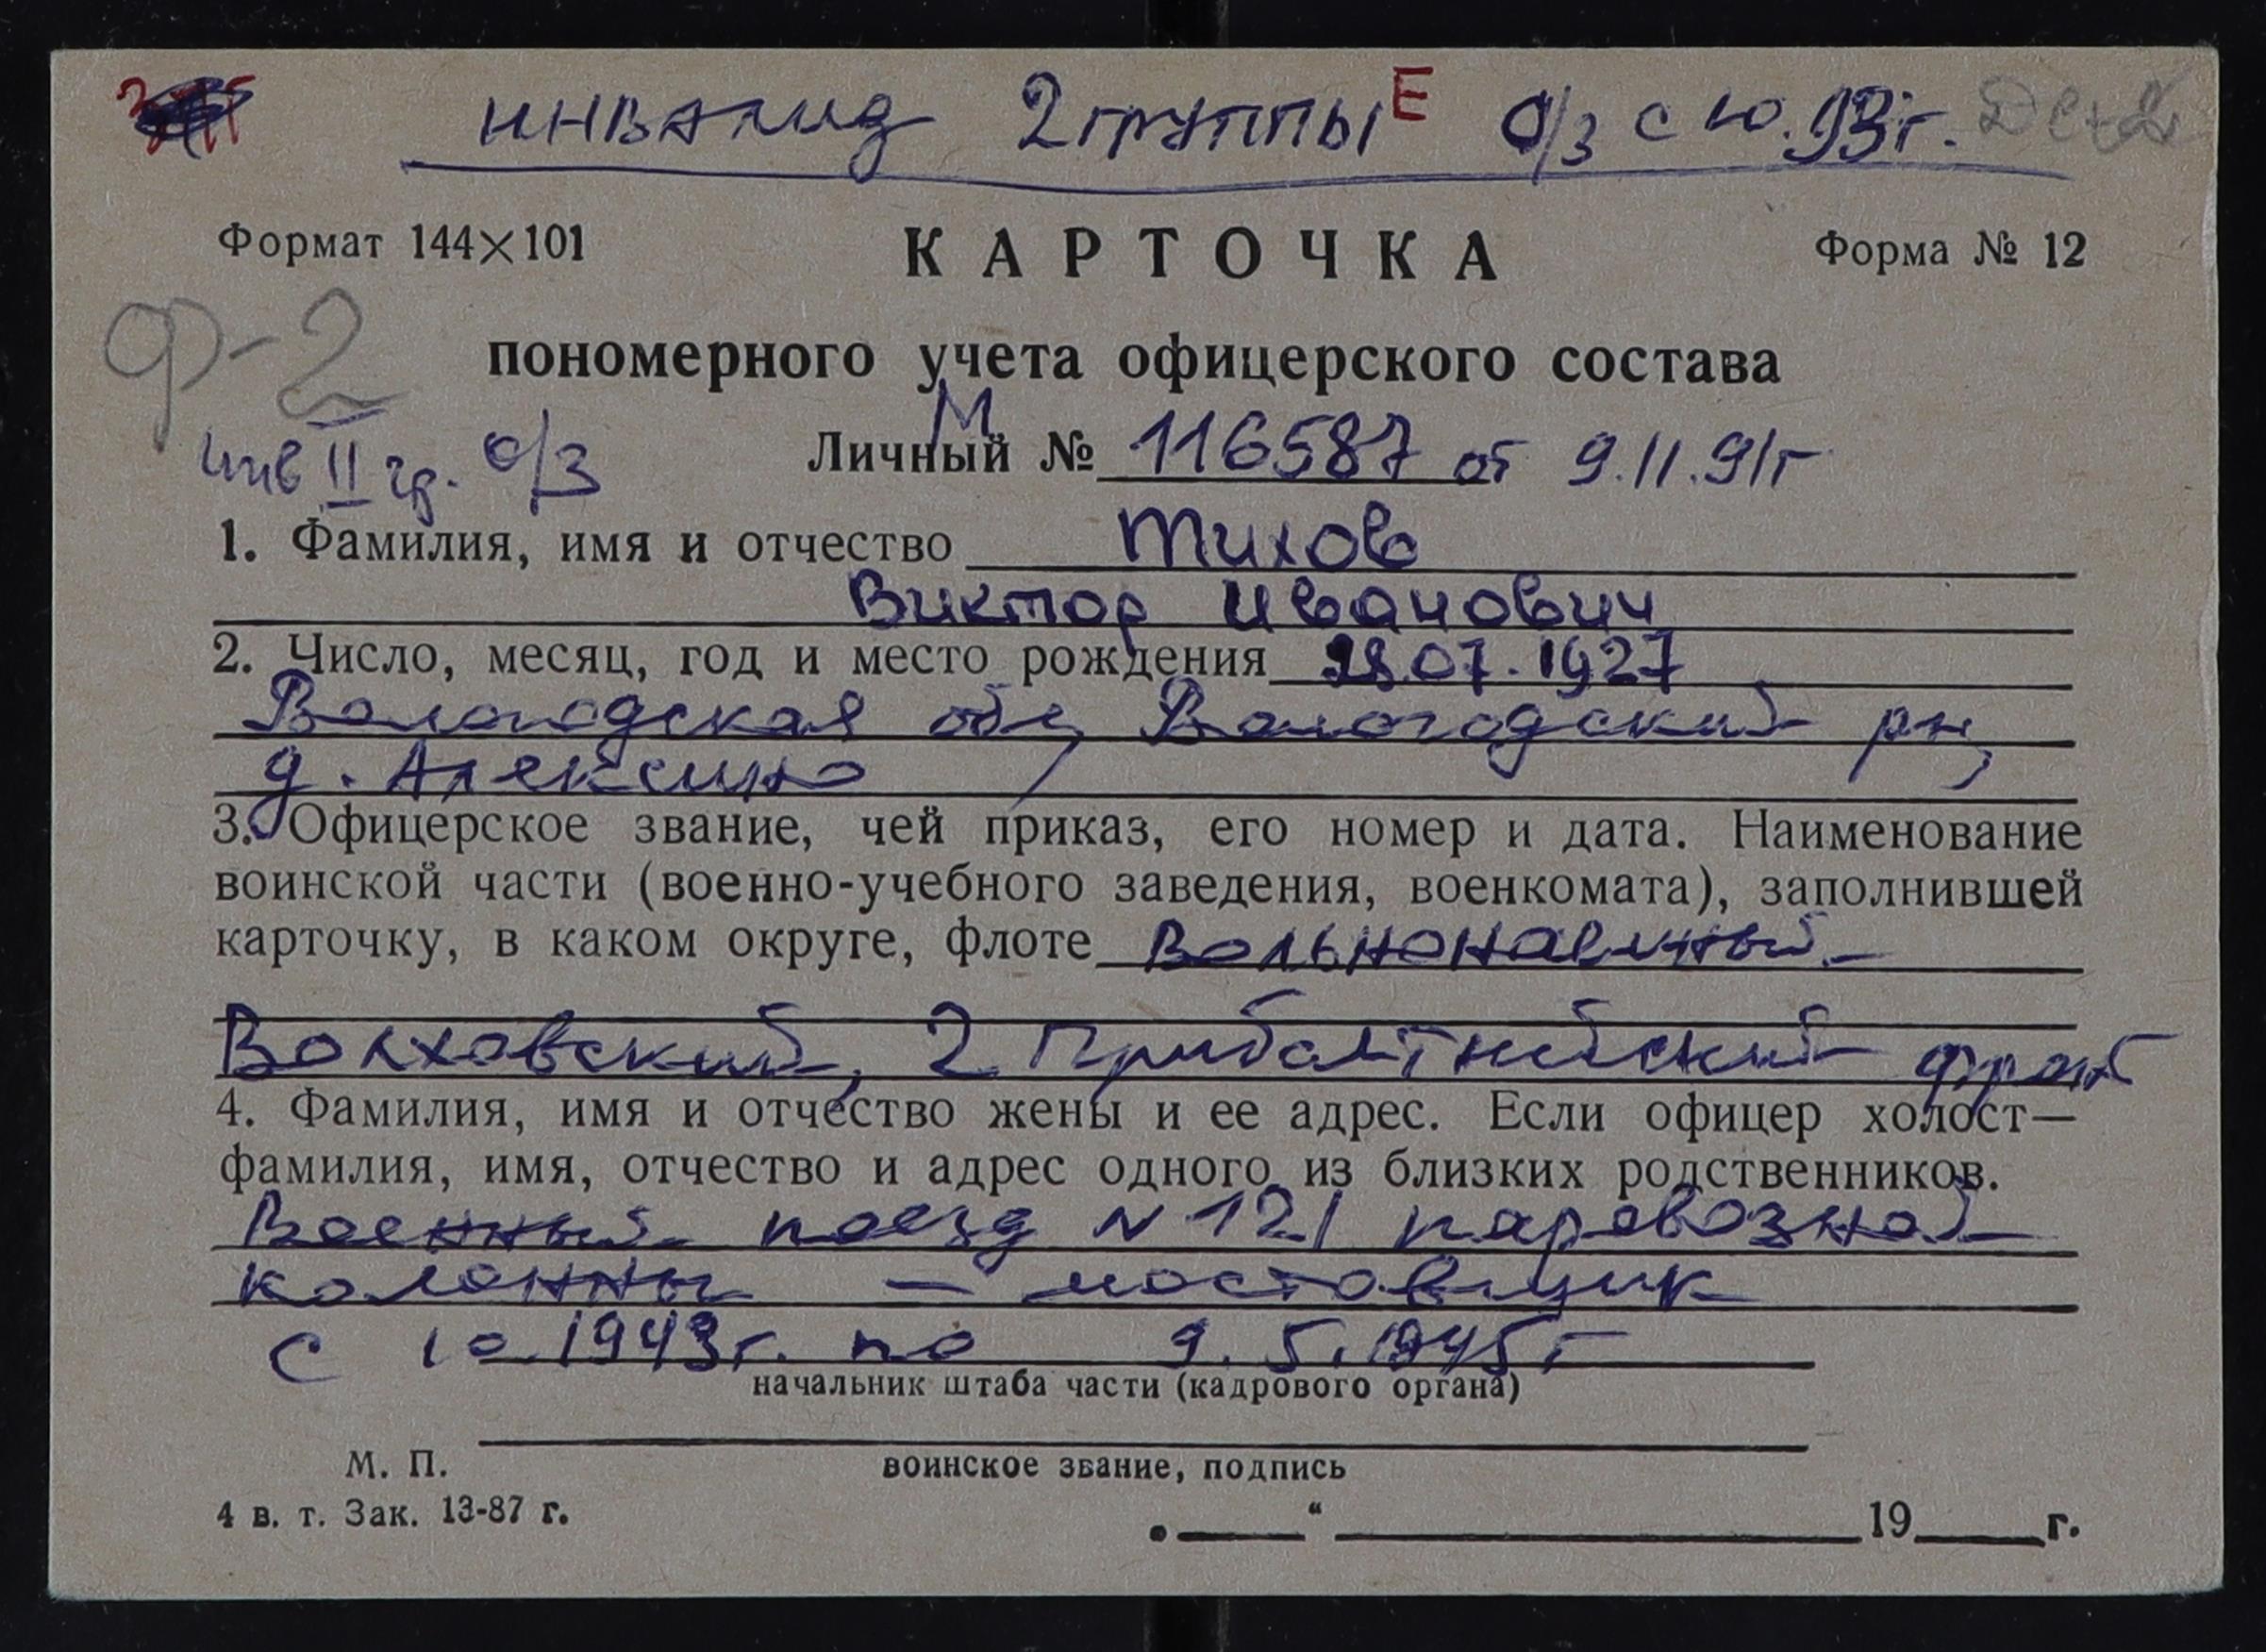 инвалид 2 группы Е о/з с 10.93г.
Формат 144×101 КАРТОЧКА Форма № 12
Ф-2
пономерного учета офицерского состава
М
инв II гр. о/з Личный № 116587 от 9.11.91г
1. Фамилия, имя и отчество Тихов
Виктор Иванович
2. Число, месяц, год и место рождения 28.07.1927
Вологодская обл, Вологодский рн,
д. Алексино
3. Офицерское звание, чей приказ, его номер и дата. Наименование
воинской части (военно-учебного заведения, военкомата), заполнившей
карточку, в каком округе, флоте Вольнонаемный
Волховский, 2 Прибалтийский фронт
4. Фамилия, имя и отчество жены и ее адрес. Если офицер холост—
фамилия, имя, отчество и адрес одного из близких родственников.
Военный поезд N 121 паровозной
колонны –
с 10.1943г. по 9.5.1945г
начальник штаба части (кадрового органа)
М. П.
воинское звание, подпись
4 в. т. Зак. 13-87 г.
„ “ 19 г.